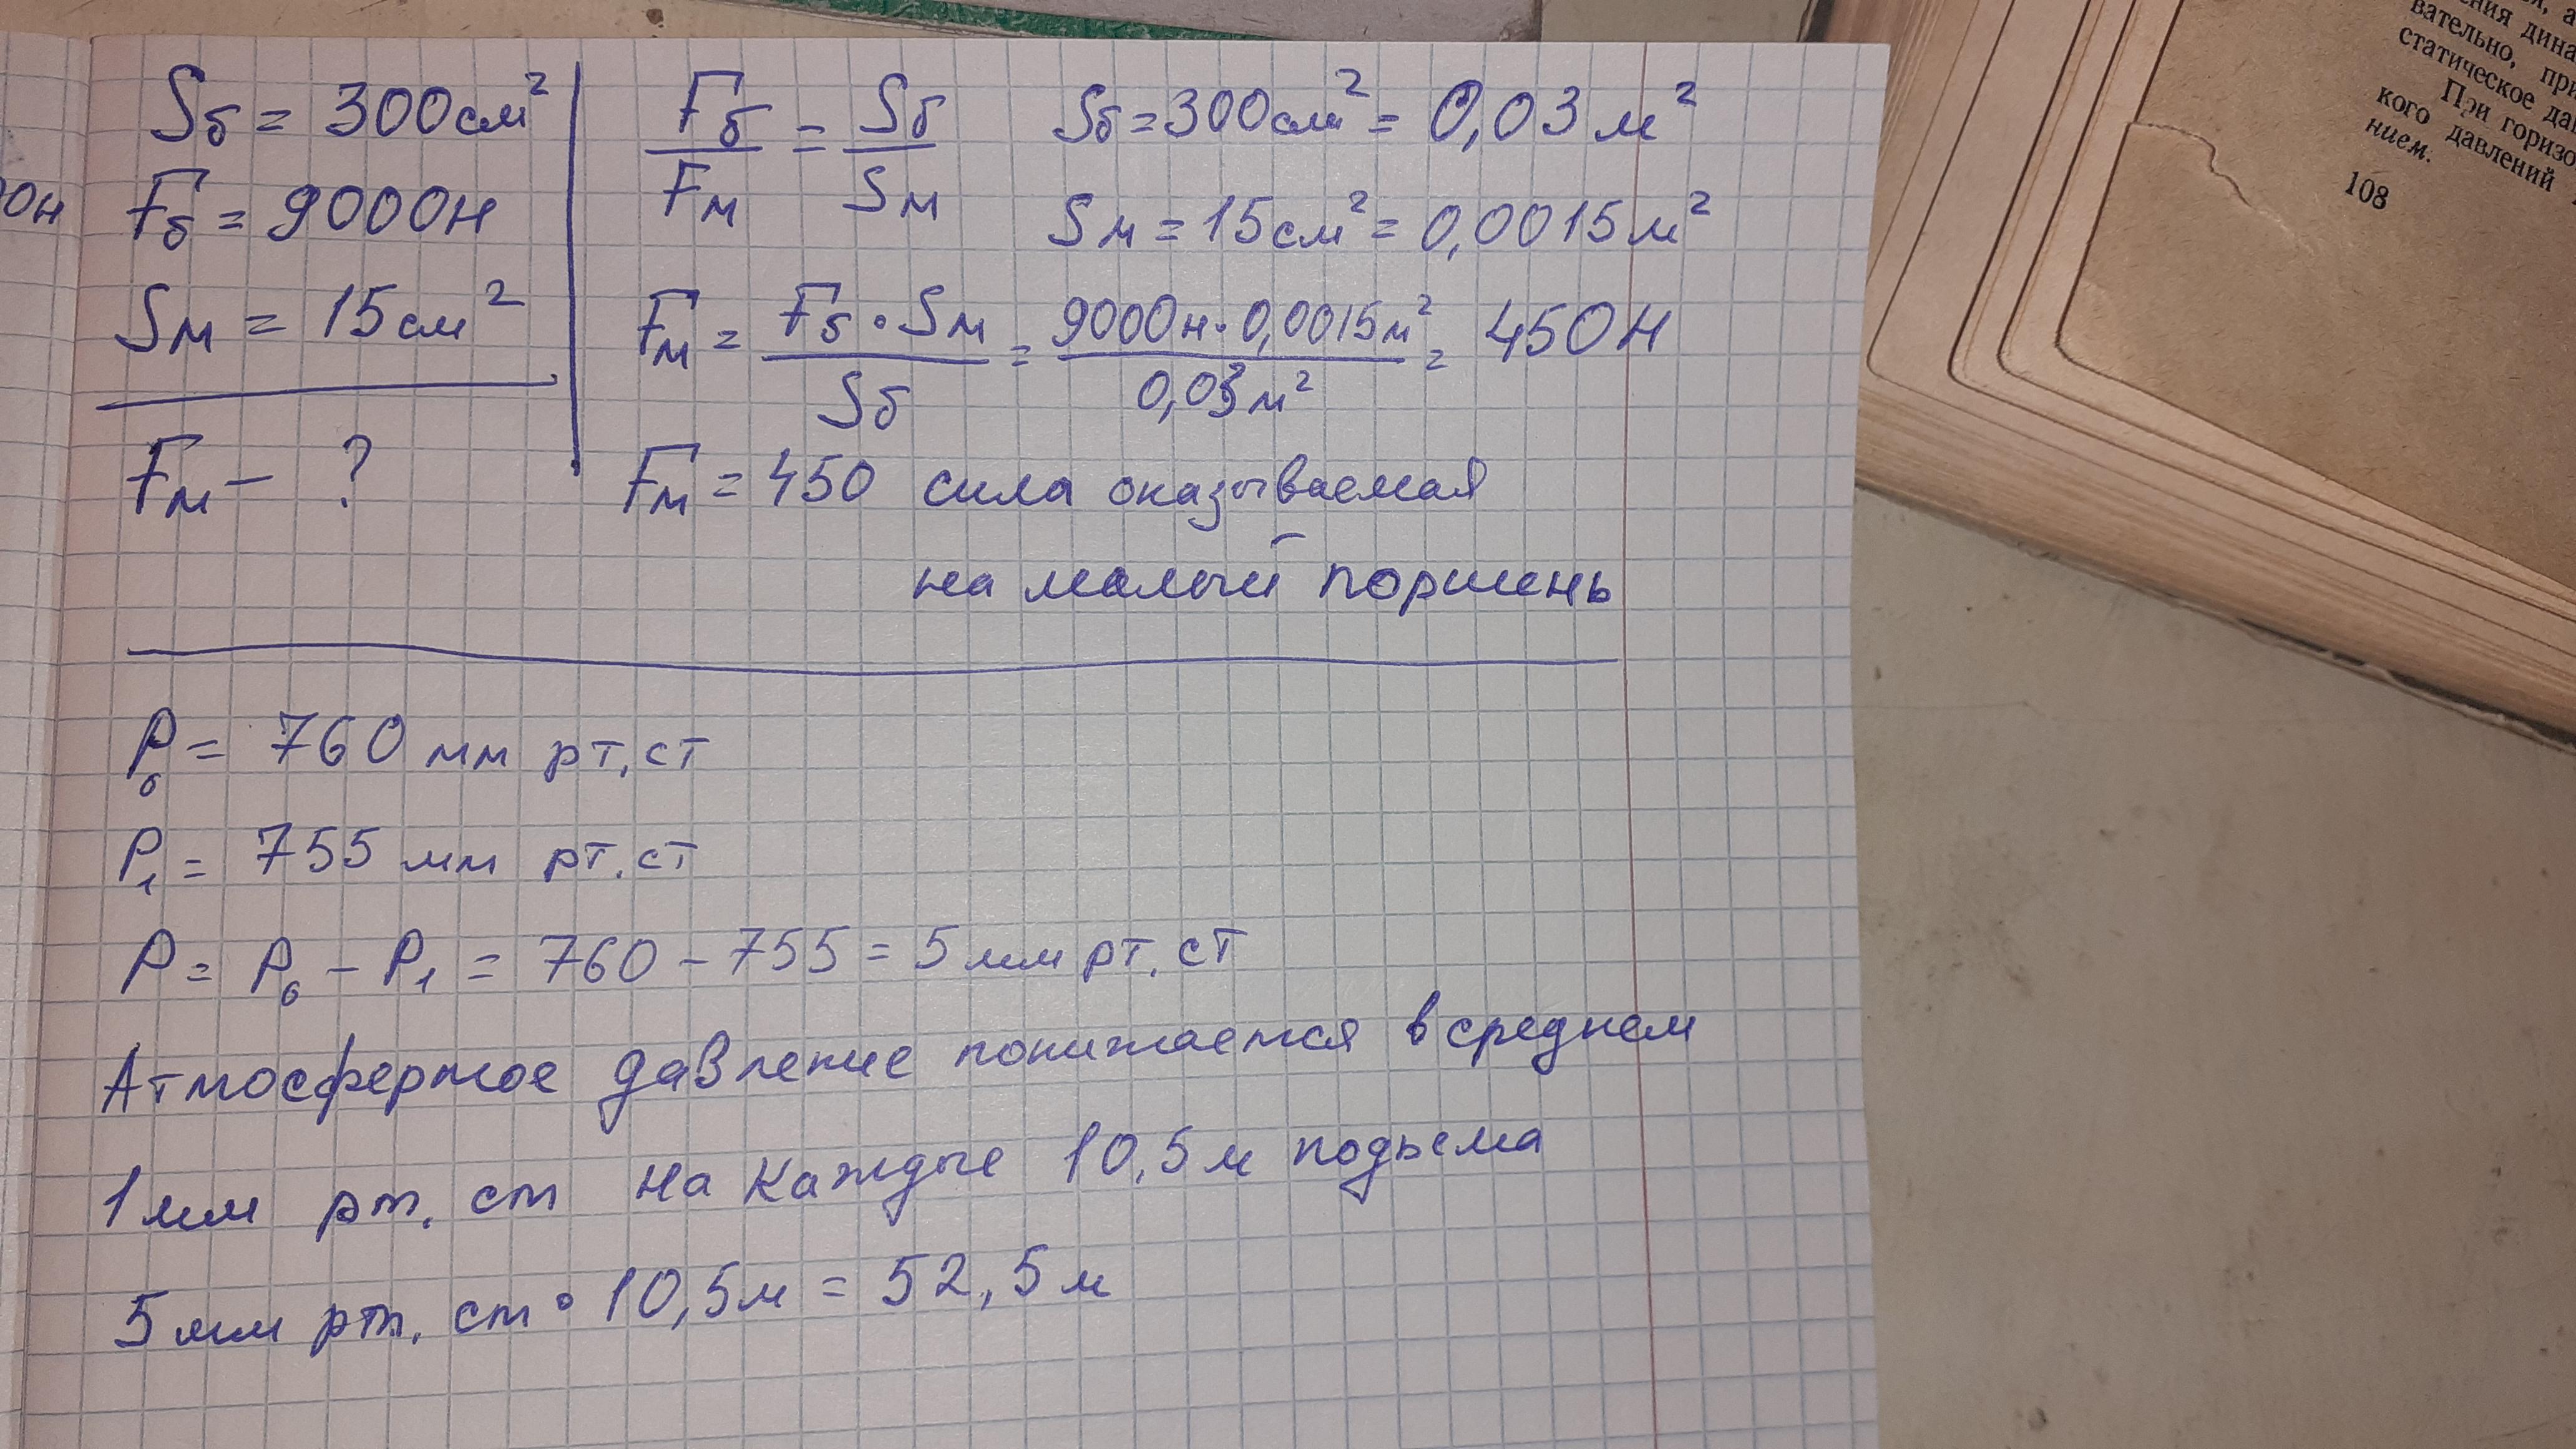 Sб = 300см²
Fб = 9000н
Sм = 15см²
Fм – ?
Fб/Fм = Sб/Sм
Sб = 300см² = 0,03 м²
Sм = 15см² = 0,0015м²
Fм = Fб · Sм / Sб = 9000н · 0,0015м² / 0,03м² = 450Н
Fм = 450 сила оказываемая
на малый поршень
P₀ = 760 мм рт.ст
P₁ = 755 мм рт.ст
P = P₀ – P₁ = 760 – 755 = 5 мм рт.ст
Атмосферное давление понижается в среднем
1 мм рт. ст на каждые 10,5 м подьема
5 мм рт. ст · 10,5м = 52,5 м
0н
вательно, при
статическое да
При горизо
кого давлений
нием.
108